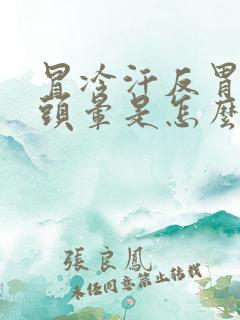 冒冷汗反胃
頭暈是怎麼
張良鳳
未经同意禁止转载